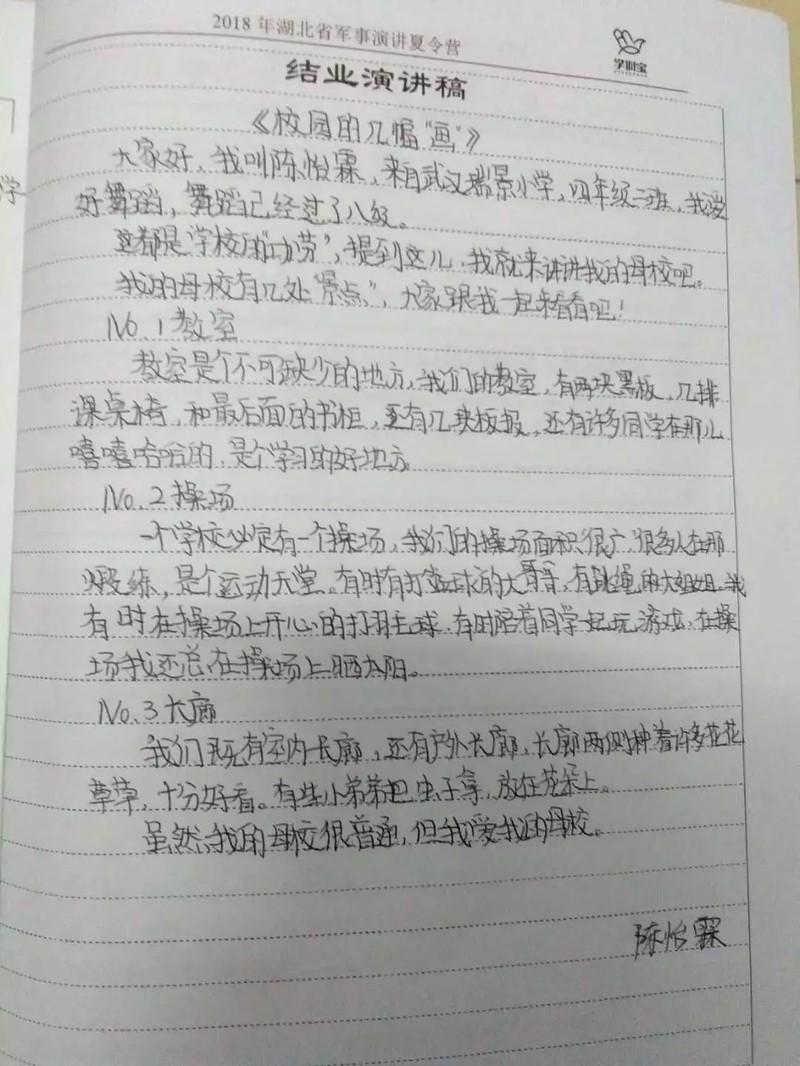 2018 年湖北省军事演讲夏令营
结业演讲稿
《校园的几幅“画”》
大家好，我叫陈怡霖，来自武汉瑞景小学，四年级二班，我爱
好舞蹈，舞蹈已经过了八级。
这都是学校的“功劳”，提到这儿，我就来讲讲我的母校吧。
我的母校有几处“景点”，大家跟我一起来看看吧！
No.1 教室
教室是个不可缺少的地方，我们的教室，有两块黑板，几排
课桌椅，和最后面的书柜，更有几块板报，还有许多同学在那儿
嘻嘻哈哈的，是个学习的好地方。
No.2 操场
一个学校必定有一个操场，我们的操场面积很广，很多人在那
煅练，是个运动天堂。有时有打篮球的大哥哥，有跳绳的大姐姐，我
有时在操场上开心的打羽毛球，有时陪着同学一起玩游戏，在操
场我还总在操场上晒太阳。
No.3 长廊
我们既有室内长廊，还有户外长廊，长廊两侧种着许多花花
草草，十分好看。有些小弟弟把虫子拿，放在花朵上。
虽然我的母校很普通，但我爱我的母校。
陈怡霖